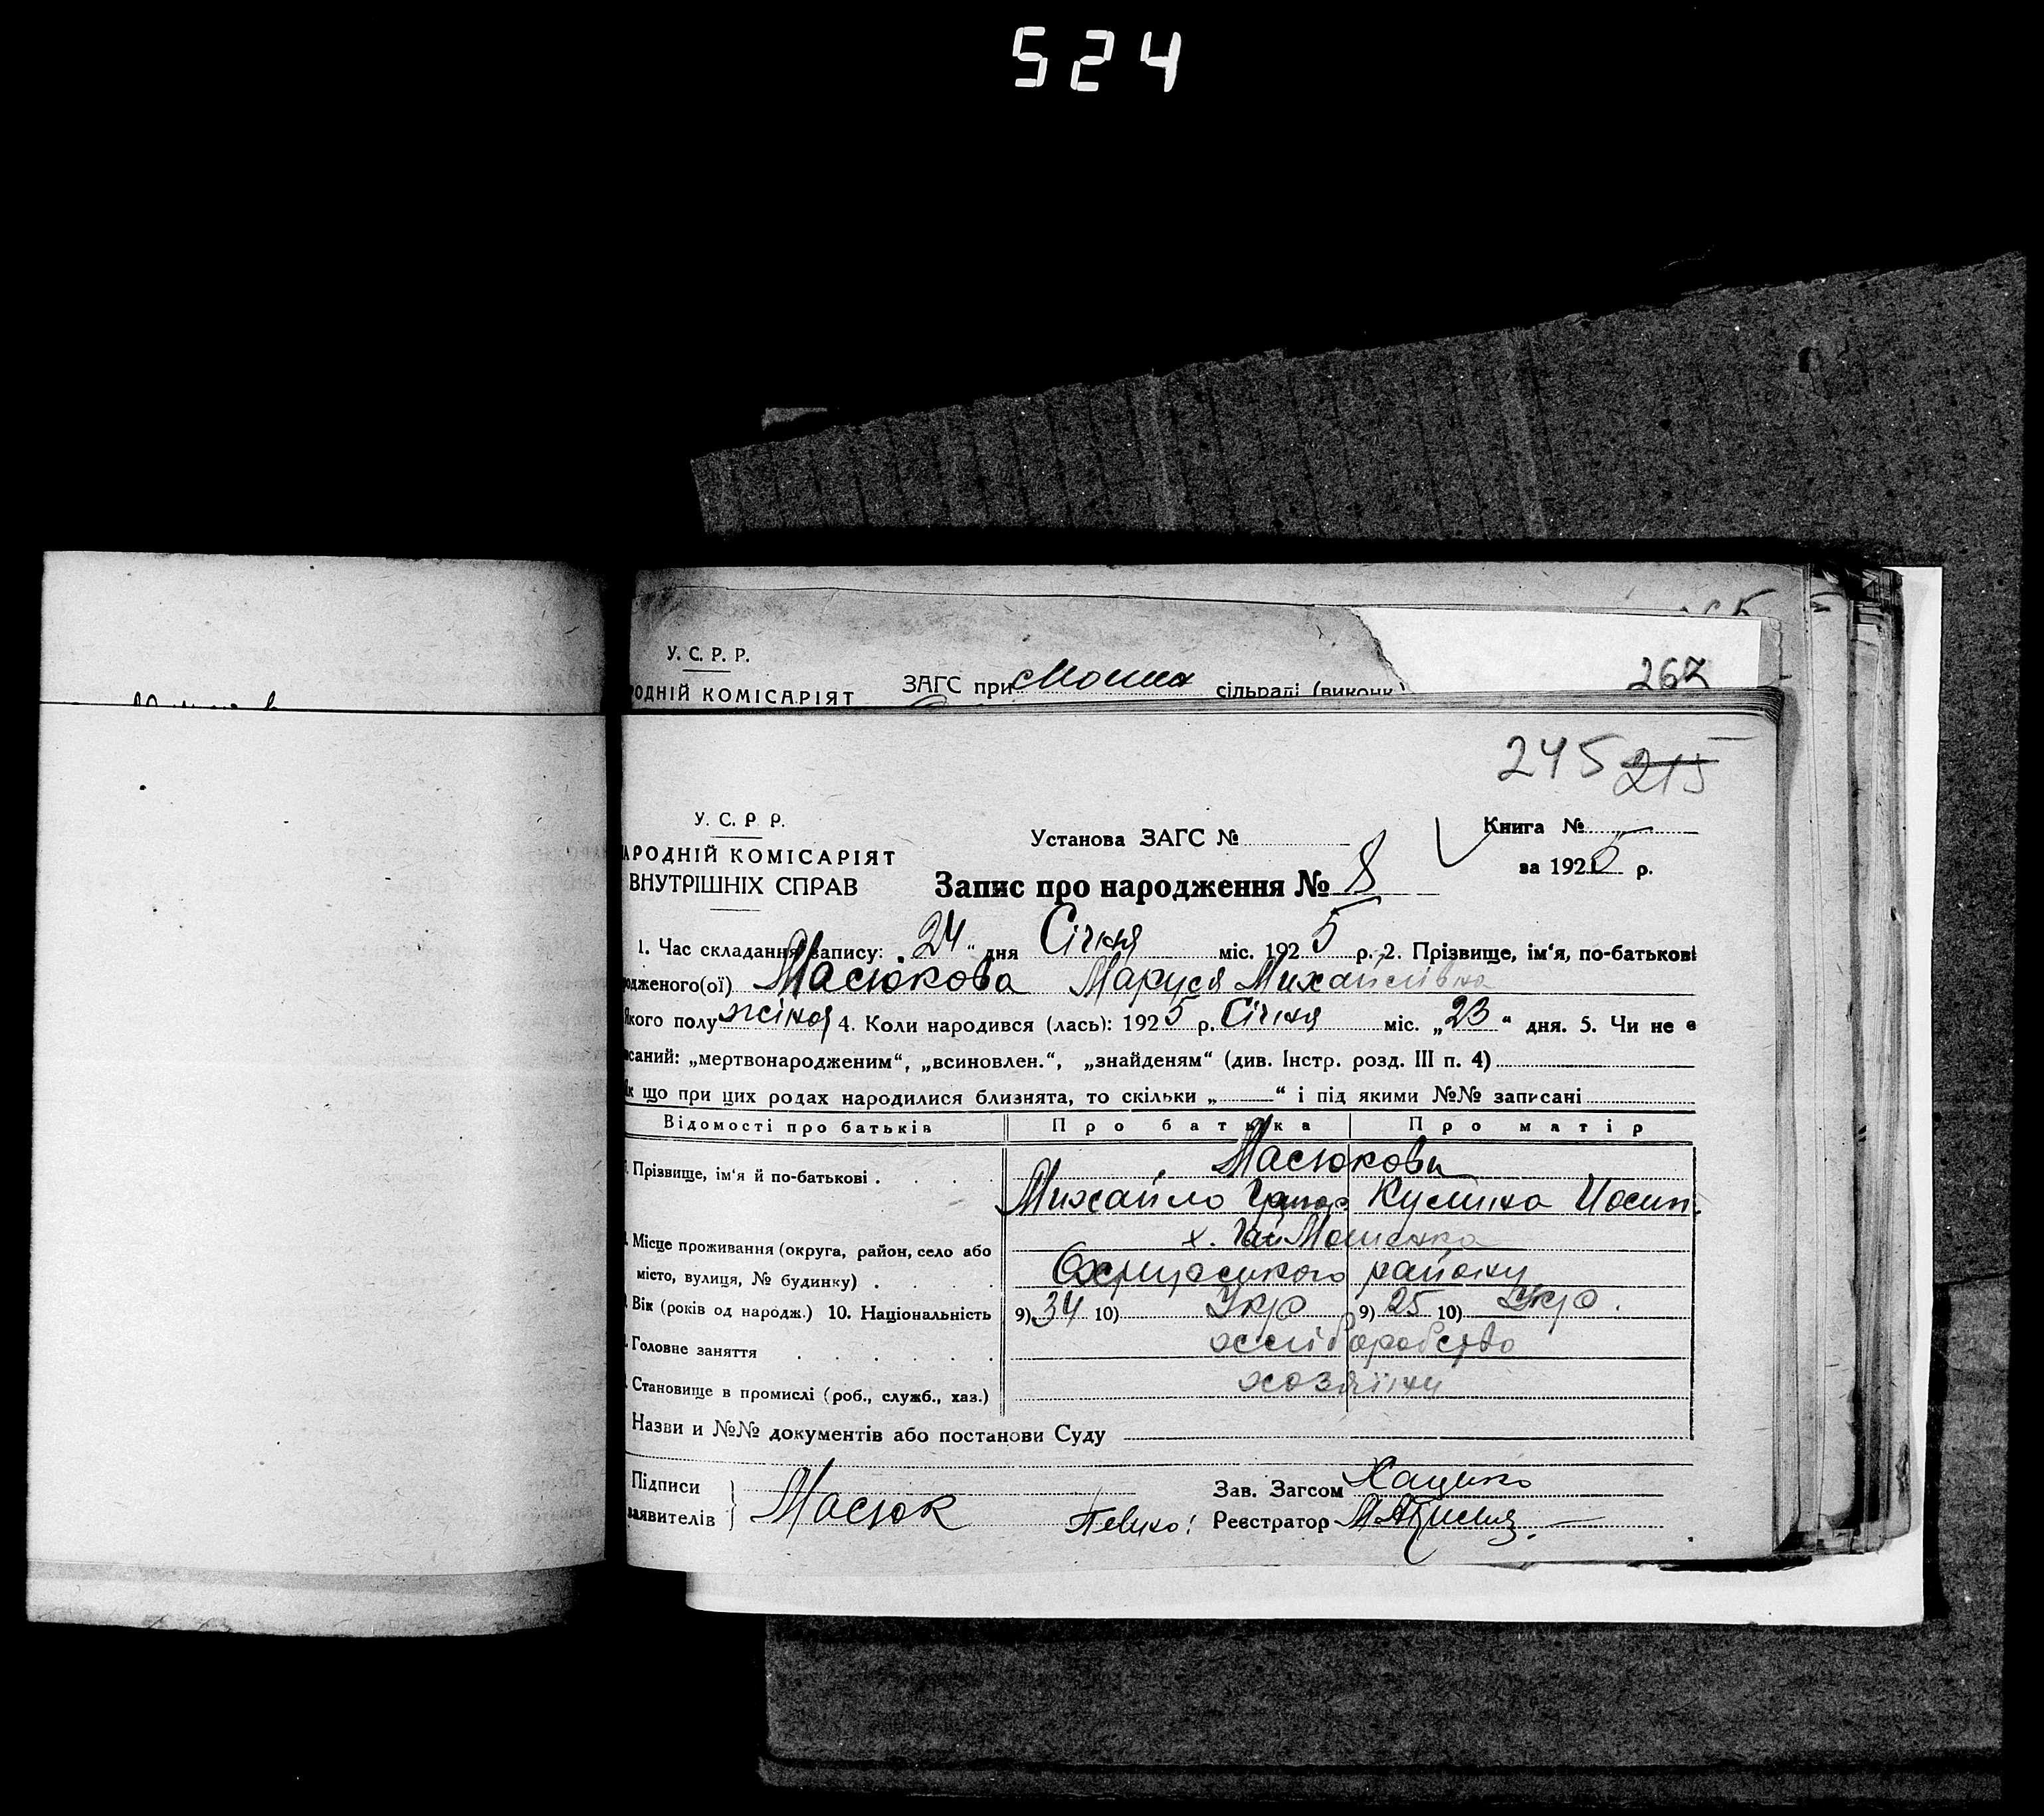 524
У. С. Р. Р.
РОДНІЙ КОМІСАРІЯТ
ЗАГС при Мошна сільраді (виконк.)
267
245 215
У. С. Р. Р.
АРОДНІЙ КОМІСАРІЯТ
ВНУТРІШНІХ СПРАВ
Установа ЗАГС №
Книга №
за 1925 р.
Запис про народження № 8
1. Час складання запису: 24 „ дня Січня міс. 1925 р. 2. Прізвище, ім'я, по-батькові
одженого(ої) Масюкова Маруся Михайлівна
Якого полу жіноч 4. Коли народився (лась): 1925 р. Січня міс. „23“ дня. 5. Чи не є
исаний: „мертвонародженим“, „всиновлен.“, „знайденям“ (див. Інстр. розд. III п. 4)
Як що при цих родах народилися близнята, то скільки „ “ і під якими №№ записані
Відомості про батьків Про батька Про матір
Прізвище, ім'я й по-батькові . Масюкови
Михайло Кулина Йосип.
Місце проживання (округа, район, село або х. Гай Мошенка
місто, вулиця, № будинку) . району
Вік (років од народж.) 10. Національність 9) 34 10) Укр 9) 25 10) Укр.
Головне заняття хліборобство
Становище в промислі (роб., служб., хаз.) хозяїни
Назви и №№ документів або постанови Суду
Підписи
заявителів } Масюк
Зав. Загсом
Реєстратор